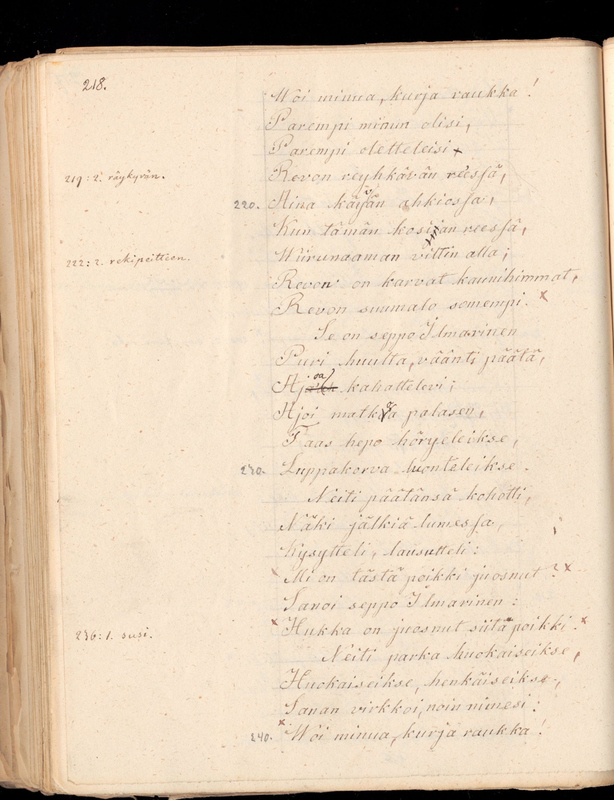 218.
Woi minua, kurja raukka!
Parempi minun olisi,
Parempi oletteleisi
219: 2. räykyvän.
Revon reyhkävän reessä,
220. Aina käyvän ahkiossa,
Kun tämän kosijan reessä,
222: 2. rekipeitteen.
Wiirunaaman viltin alla;
Revon on karvat kaunihimmat,
Revon suumalo somempi.
Se on seppo Ilmarinen
Puri huulta, väänti päätä,
Ajoa kahattelevi;
Ajoi matkoa palasen,
Taas hepo höryeleikse,
230. Luppakorva luonteleikse.
Neiti päätänsä kohotti,
Näki jälkiä lumessa,
Kysytteli, lausutteli:
Mi on tästä poikki juosnut?
Sanoi seppo Ilmarinen:
236: 1. susi.
Hukka on juosnut siitä poikki.
Neiti parka huokaiseikse,
Huokaiseikse, henkäiseikse,
Sanan virkkoi, noin nimesi:
240. Woi minua, kurja raukka!